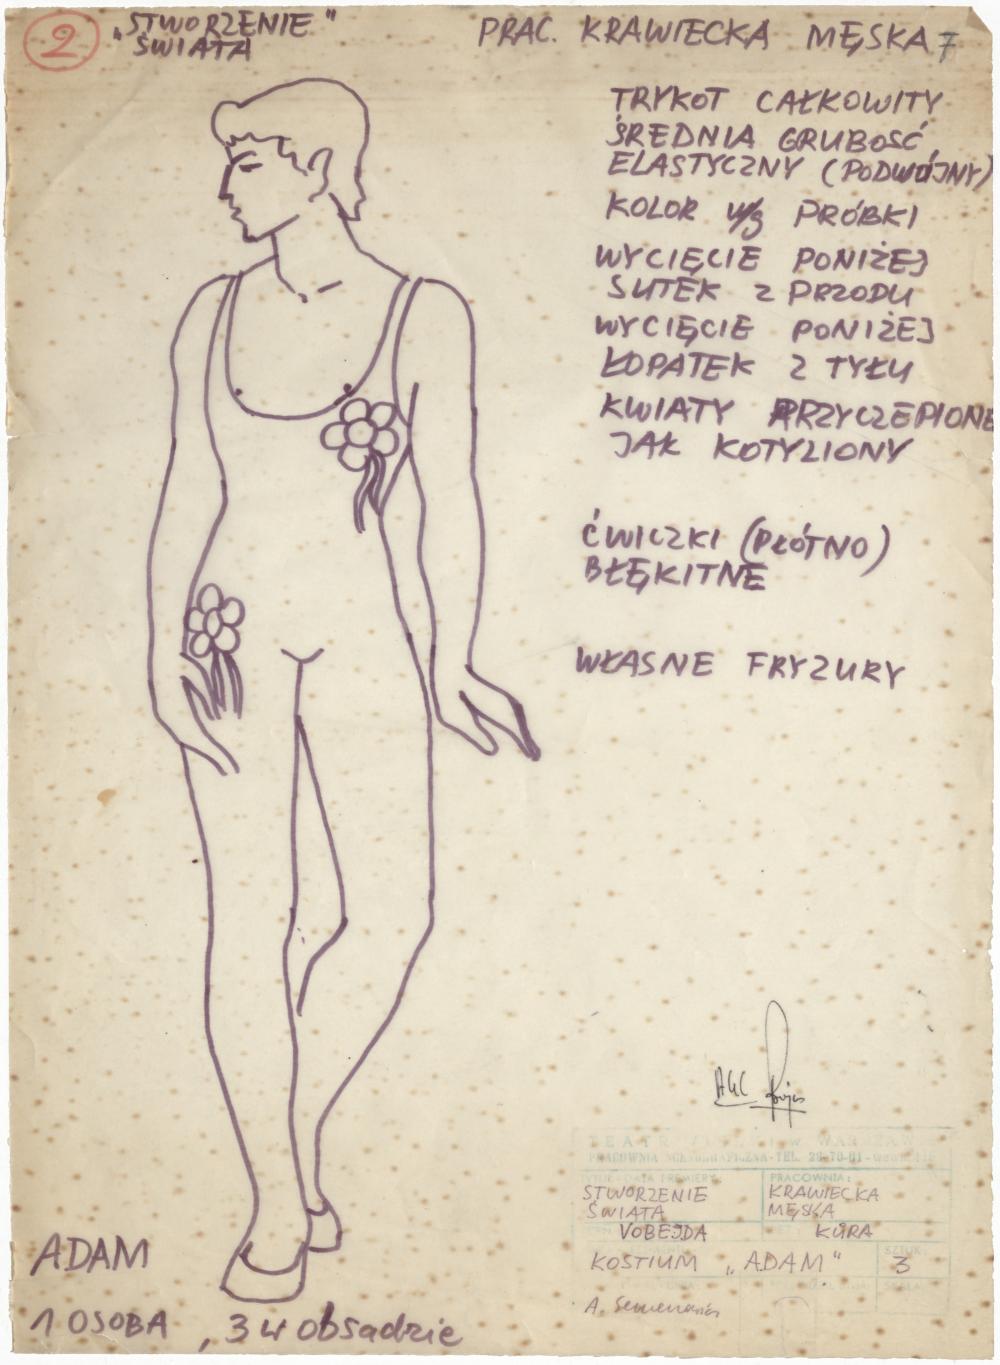 2
„STWORZENIE"
ŚWIATA
PRAC. KRAWIECKA MĘSKA 7
TRYKOT CAŁKOWITY
ŚREDNIA GRUBOŚĆ,
ELASTYCZNY (PODWÓJNY)
KOLOR w/g PRÓBKI
WYCIĘCIE PONIŻEJ
SUTEK Z PRZODU
WYCIĘCIE PONIŻEJ
ŁOPATEK Z TYŁU
KWIATY PRZYCZEPIONE
JAK KOTYLIONY
ĆWICZKI (PŁÓTNO)
BŁĘKITNE
WŁASNE FRYZURY
TEATR WIELKI w WARSZAWIE
PRACOWNIA SCENOGRAFICZNA-TEL. 26-70-01
DATA PREMIERY
PRACOWNIA:
STWORZENIE
ŚWIATA
KRAWIECKA
MĘSKA
VOBEJDA
KURA
KOSTIUM „ADAM"
SZTUK:
3
ADAM
1 OSOBA , 3 w obsadzie